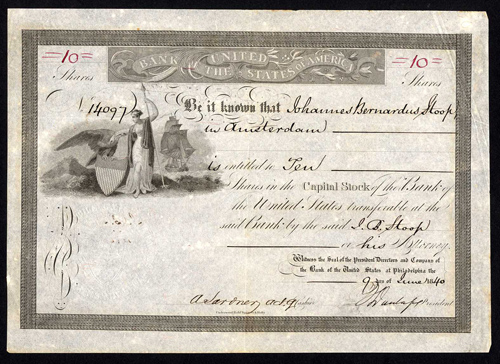 =10=
Shares
BANK OF THE UNITED STATES OF AMERICA
=10=
Shares
14097
Be it known that Johannes Bernardus Stoop
in Amsterdam
is entitled to Ten
Shares in the Capital Stock of the Bank of
the United States transferable at the
said Bank by the said J. B. Stoop
or his Attorney.
Witness the Seal of the President Directors and Company of
the Bank of the United States at Philadelphia the
9 day of June 1840
A Lardner, act.g Cashier
President